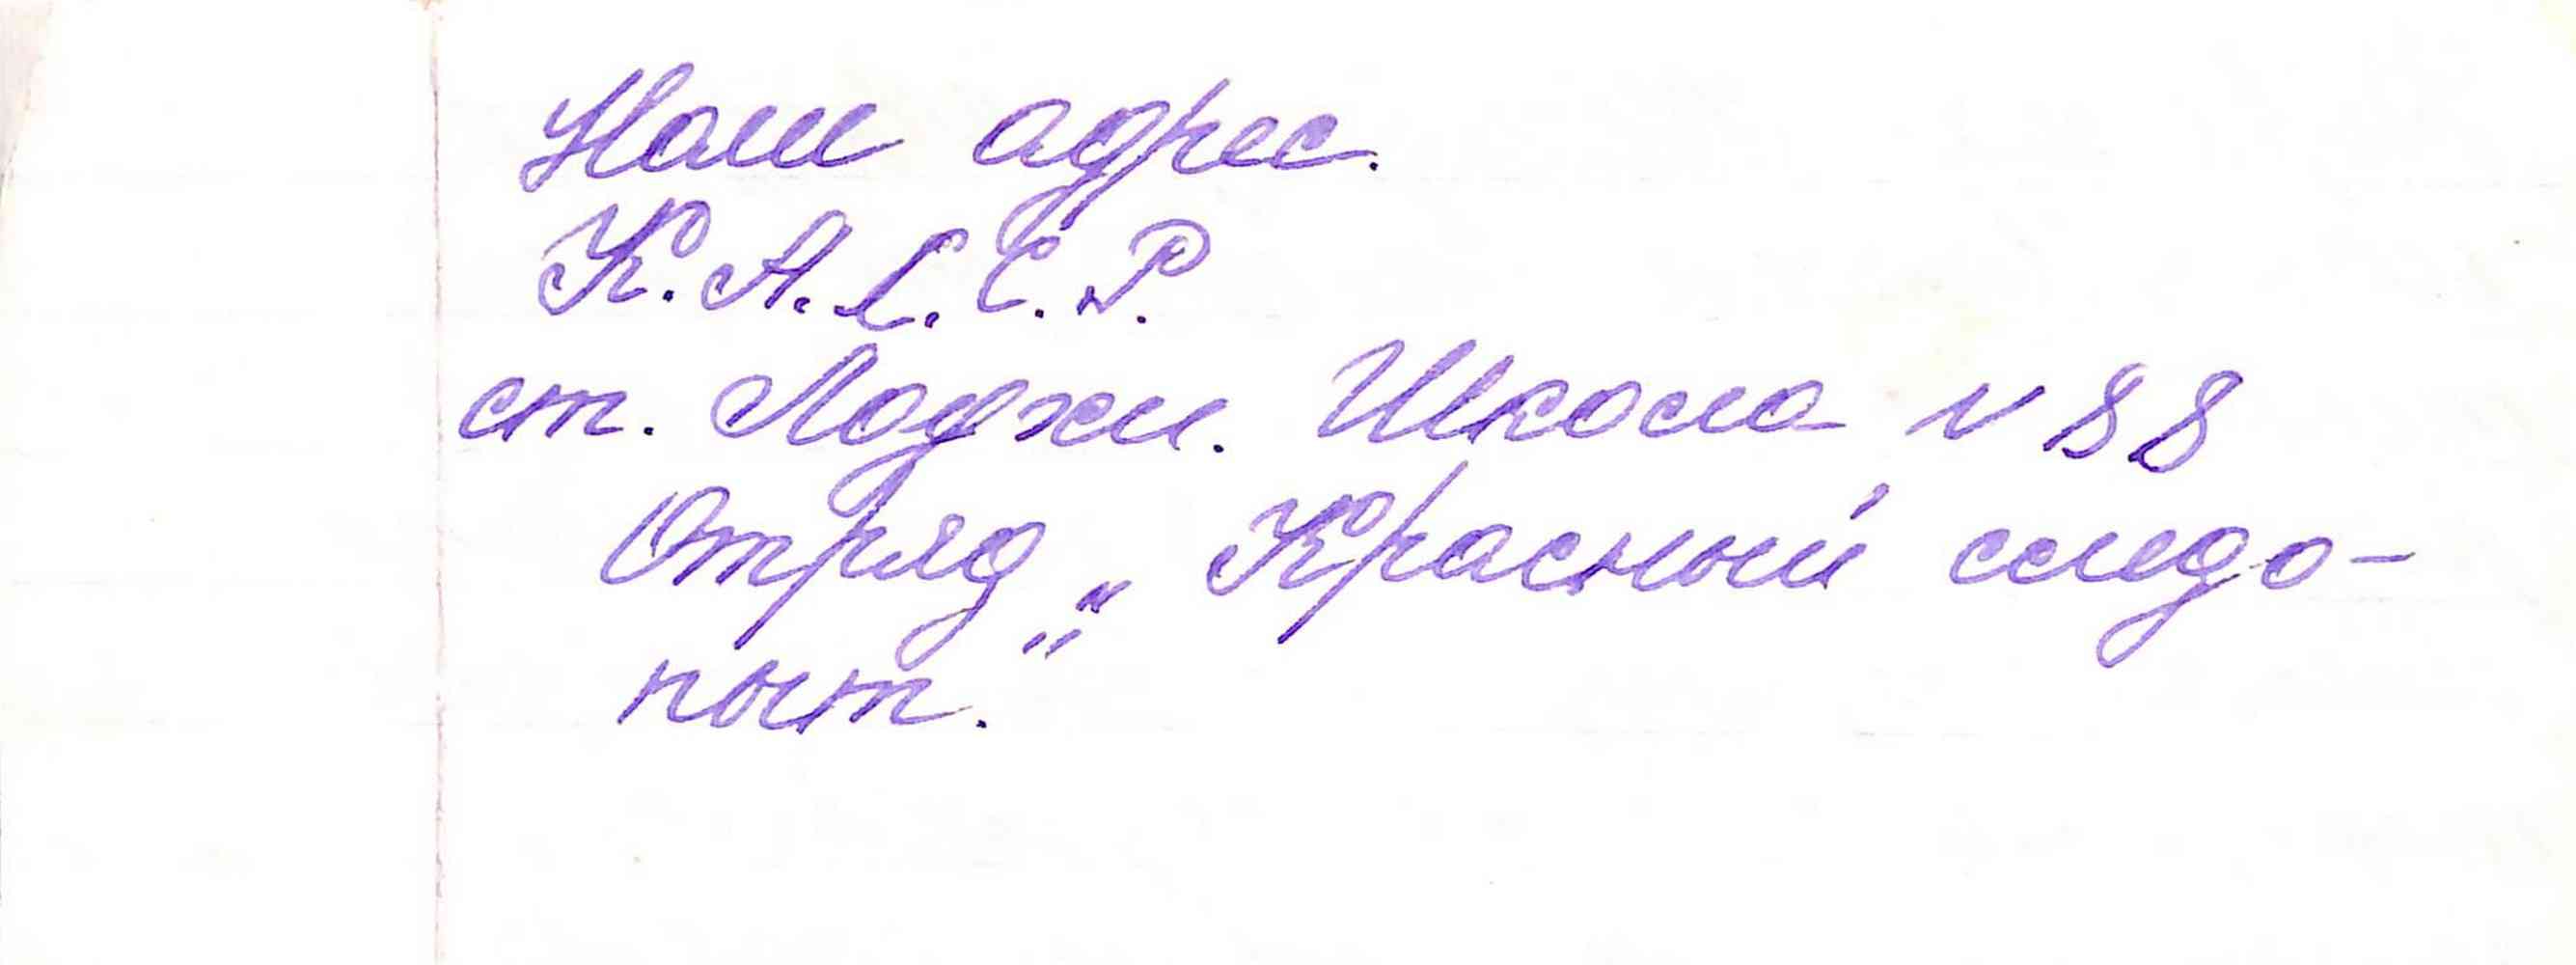 Наш адрес.
К. А. С. С. Р.
ст. Лоухи. Школа N 88
Отряд „ Красный следо-
пыт."